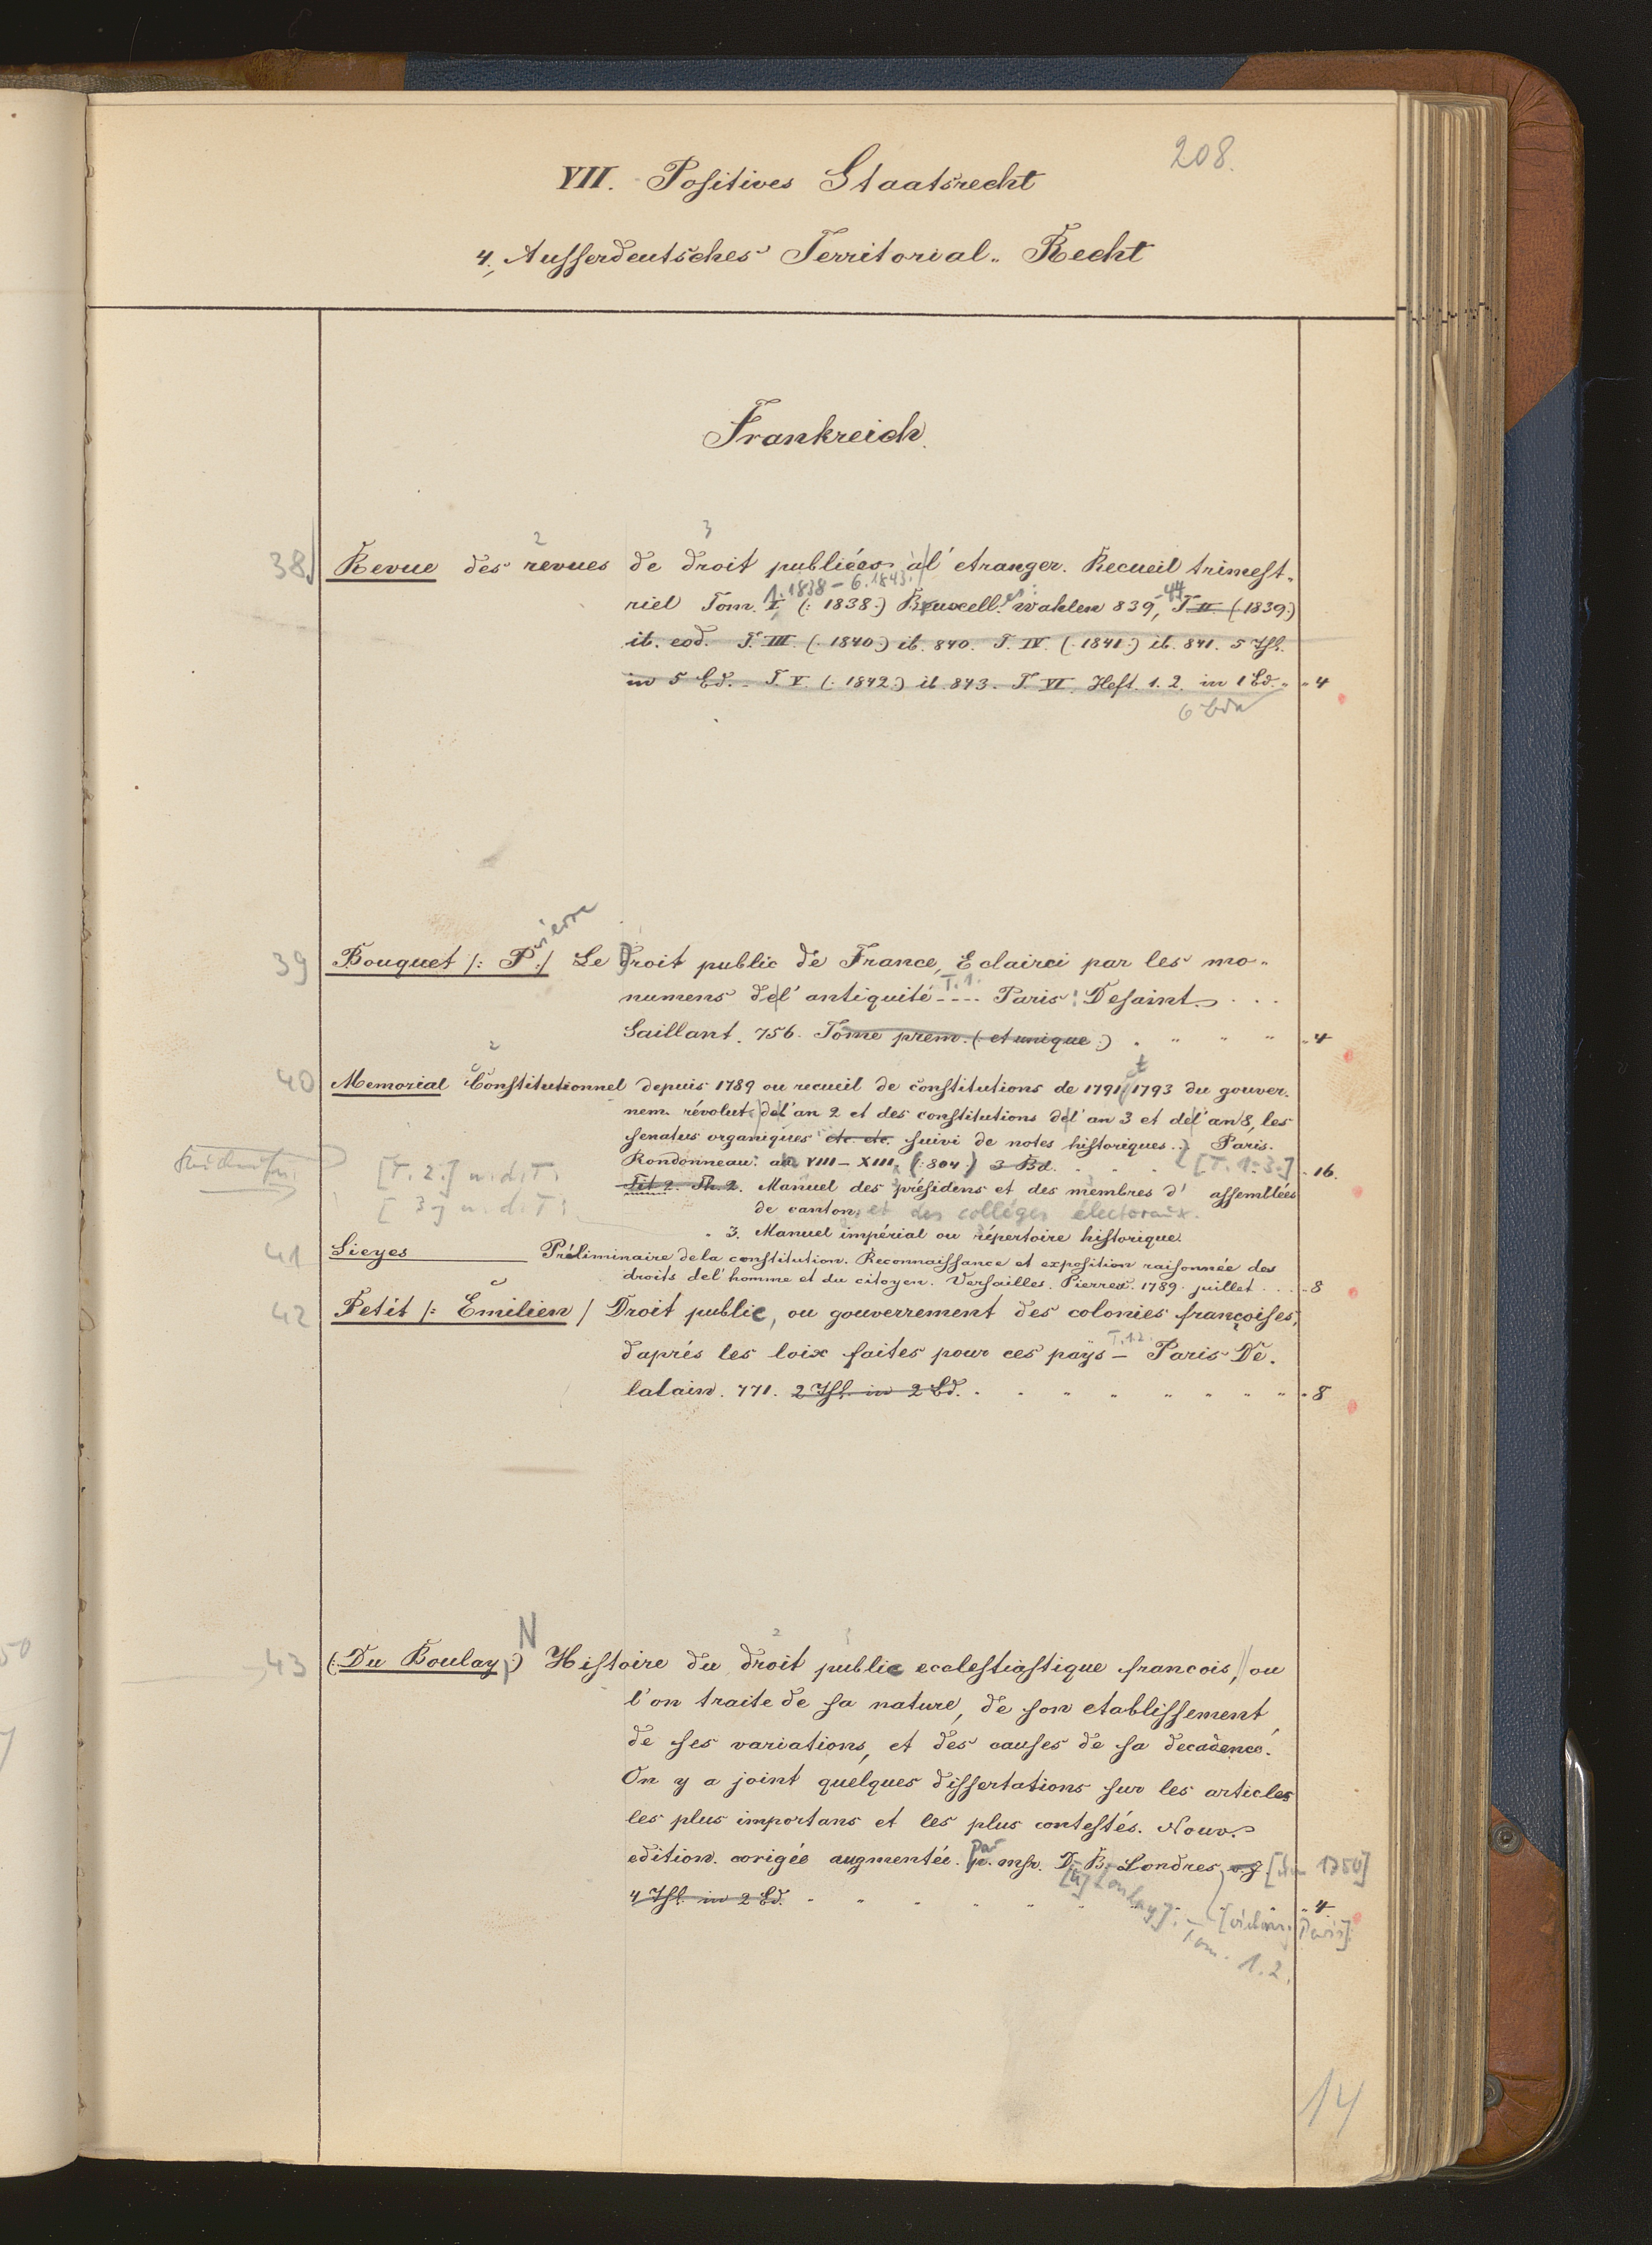 208.
VII. Positives Staatsrecht
4., Ausserdeutsches Territorial-Recht
Frankreich.
2 3
38. Revue des revues de droit publiées a l'etranger. Recueil trimest-
1.1838 - 6.1843. -44
riel Tom. I, (: 1838:) Bruxell. Wahlen 839, T. II (1839:)
ib. eod. T. III (: 1840:) ib. 840. T. IV. (: 1841:) ib. 841. 5 Thl.
in 5 Bd. - T. V. (: 1842:) ib. 843. T. VI. Heft. 1. 2. in 1 Bd. 4
6 Bde
ierre
39 Bouquet /: P :/ Le Droit public de France, Eclairci par les mo-
T. 1.
numens de l'antiquité ---- Paris: Desaint. . . .
Saillant. 756. Tome prem. (: et unique:) 4
2
40 Memorial Constitutionnel depuis 1789 ou recueil de constitutions de 1791, 1793 du gouver-
nem. révolut. de l'an 2 et des constitutions de l'an 3 et de l'an 8, les
senatus organiques etc. etc. suivi de notes historiques. Paris.
Rondonneau. an VIII - XIII, (: 804:) 3 Bd. [T. 1-3.] 16.
[T. 2.] u. d. T: Tit 2. Th. 2. Manuel des présidens et des membres d' assemblées
de canton, et des collèges électoraux.
[ 3.] u. d. T: 3. Manuel impérial ou répertoire historique.
41 Sieyes Préliminaire de la constitution. Reconnaissance et exposition raisonnée des
droits de l'homme et du citoyen. Versailles. Pierres. 1789. juillet . . . 8
42 Petit /: Emilien / Droit public, ou gouverrement des colonies françoises,
T. 1.2.
d'aprés les loix faites pour ces pays - Paris De-
lalain. 771. 2 Thl. in 2 Bd. 8
N 2 3
43 (: Du Boulay :) Histoire du droit public ecclestiastique francois, ou
l'on traite de sa nature, de son etablissement,
de ses variations, et des causes de sa decadence.
On y a joint quelques dissertations sur les articles
les plus importans et les plus contestés. Nouv.
edition. corigée augmentée. par msr. D. B. Londres o.J. [um 1750]
4 Thl. in 2 Bd. 4
[u] Boulay]. - [vielm. Paris].
Tom. 1. 2.
14